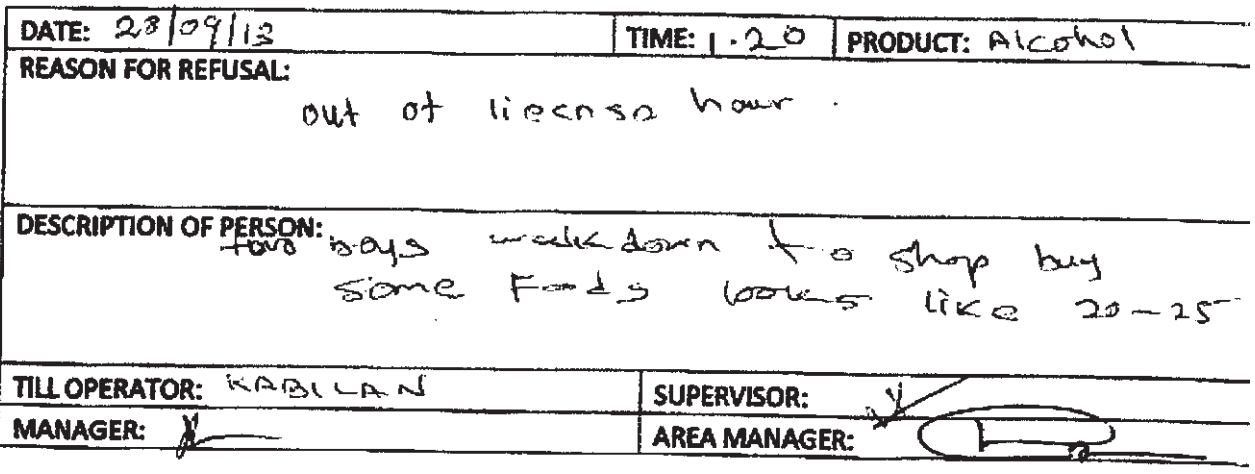 DATE: 28/09/13 TIME: 1.20 PRODUCT: Alcohol
REASON FOR REFUSAL:
out of license hour.
DESCRIPTION OF PERSON:
two boys walk down to shop buy
some Foods looks like 20-25
TILL OPERATOR: KABILAN SUPERVISOR:
MANAGER: AREA MANAGER: